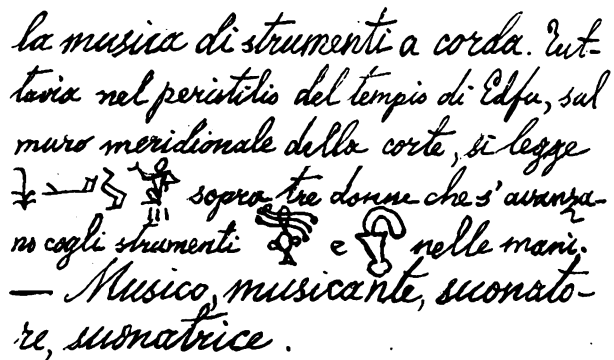 la musica di strumenti a corda. Tut-
tavia nel peristilio del tempio di Edfu, sul
muro meridionale della corte, si legge
sopra tre donne che s'avanza-
no cogli strumenti e nelle mani.
— Musico, musicante, suonato-
re, suonatrice.